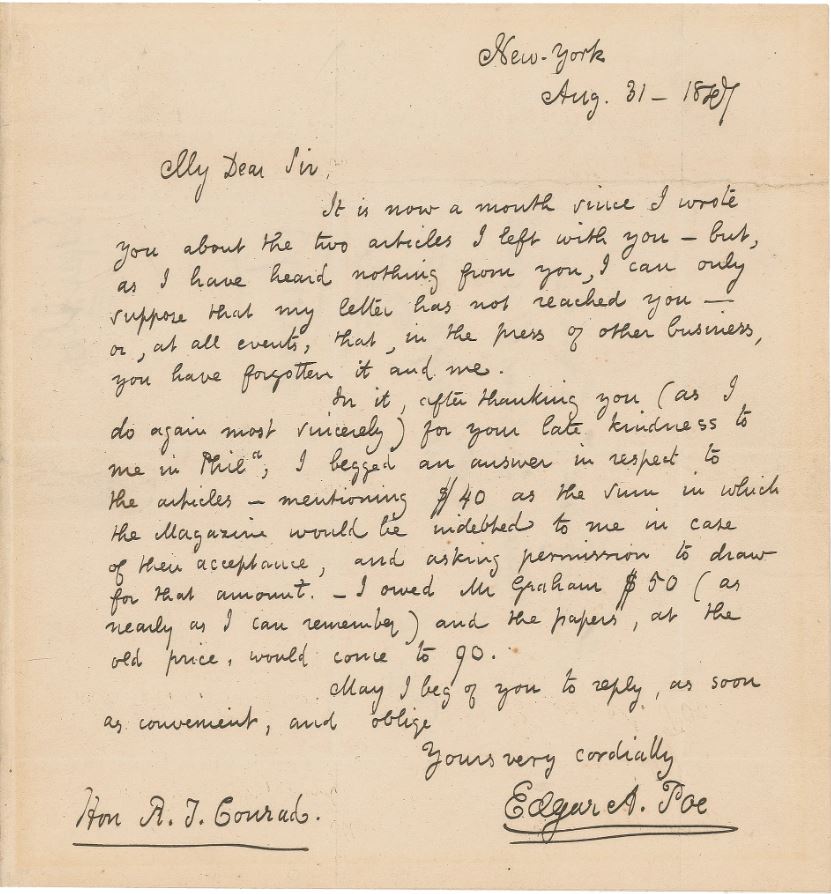 New-York
Aug. 31 – 1847
My Dear Sir,
It is now a month since I wrote
you about the two articles I left with you – but,
as I have heard nothing from you, I can only
suppose that my letter has not reached you —
or, at all events, that, in the press of other business,
you have forgotten it and me.
In it, after thanking you (as I
do again most sincerely) for your late kindness to
me in Phila, I begged an answer in respect to
the articles – mentioning $40 as the sum in which
the Magazine would be indebted to me in case
of their acceptance, and asking permission to draw
for that amount. – I owed Mr Graham $50 (as
nearly as I can remember) and the papers, at the
old price, would come to 90.
May I beg of you to reply, as soon
as convenient, and oblige
Yours very cordially
Edgar A. Poe
Hon R. T. Conrad.